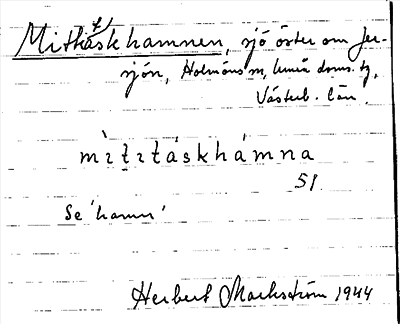 Mittåskhamnen, sjö öster om Jer-
sjön, Holmöns sn, Umeå doms. tg,
Västerb. län.
mìtıtáskhámna
51
Se 'hamn'
Herbert Markström 1944